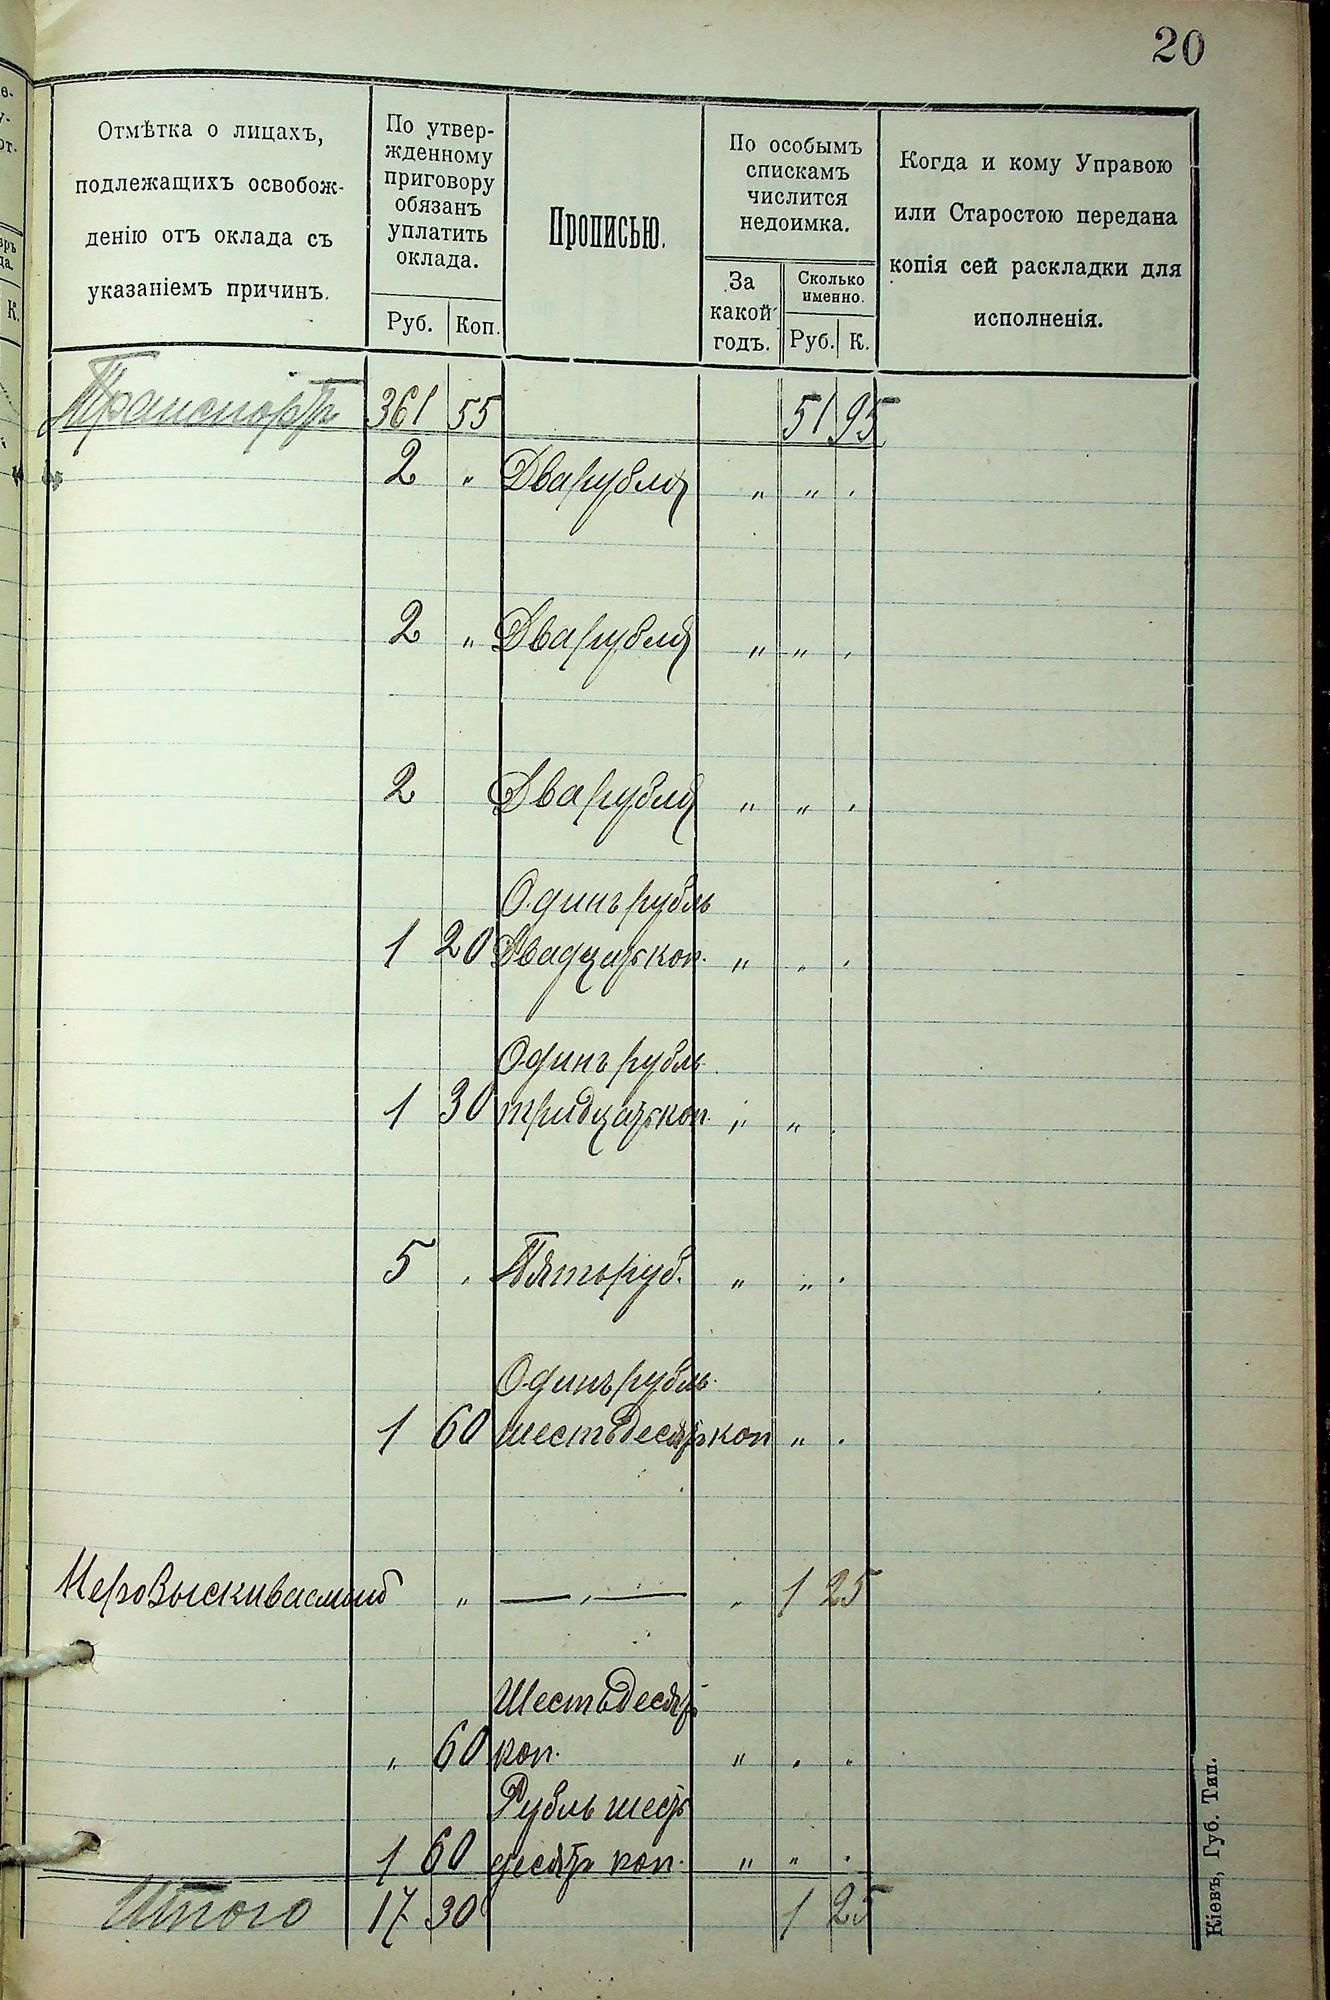 20
Отмѣтка о лицахъ,
подлежащихъ освобож-
денію отъ оклада съ
указаніемъ причинъ.
По утвер-
жденному
приговору
обязанъ
уплатить
оклада.
Руб. Коп.
Прописью.
По особымъ
спискамъ
числится
недоимка.
За
какой
годъ.
Сколько
именно.
Руб. К.
Когда и кому Управою
или Старостою передана
копія сей раскладки для
исполненія.
Транспортъ 361 55 51 95
2 " Два рубля " " "
2 " Два рубля " " "
2 Два рубля " " "
Одинъ рубль
1 20 Двадцать коп. " " "
Одинъ рубль
1 30 тридцать коп. " " "
5 " Пять руб. " " "
Одинъ рубль
1 60 шестьдесятъ коп " "
" — " — " 1 25
Шестьдесятъ
" 60 коп. " " "
Рубль шесть
1 60 десятъ коп. " " "
Итого 17 30 1 25
Кіевъ, Губ. Тип.